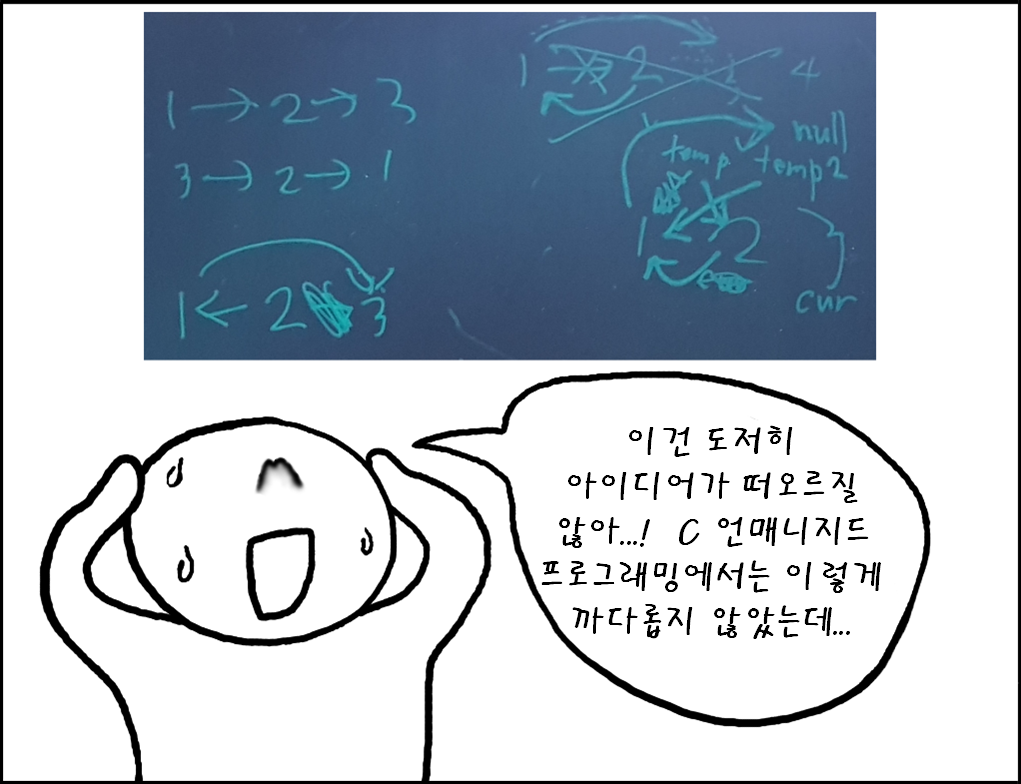 1 → 2 → 3
3 → 2 → 1
1 ← 2 3
1 → 2 4
null
temp temp2
1 2 3
cur
이건 도저히
아이디어가 떠오르질
않아...! C 언매니지드
프로그래밍에서는 이렇게
까다롭지 않았는데...